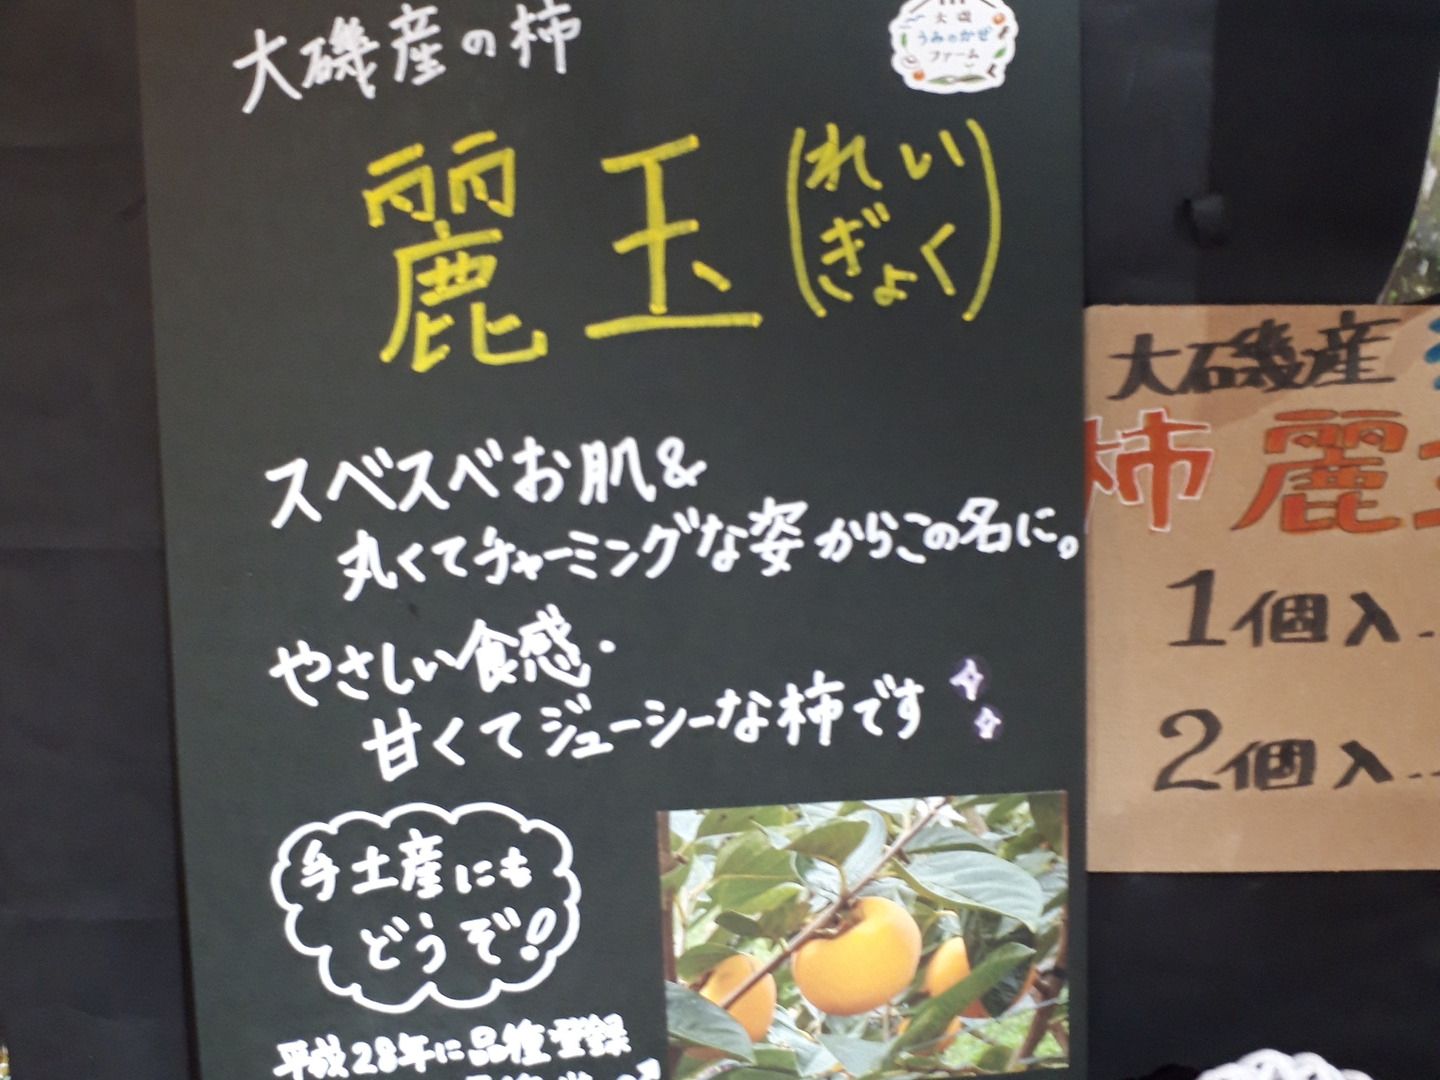 大磯産の柿
大磯
うみのかぜ
ファーム
麗玉(れいぎょく)
スベスベお肌&
丸くてチャーミングな姿からこの名に。
やさしい食感・
甘くてジューシーな柿です
手土産にも
どうぞ!
平成28年に品種登録
大磯産
柿 麗
1個入
2個入